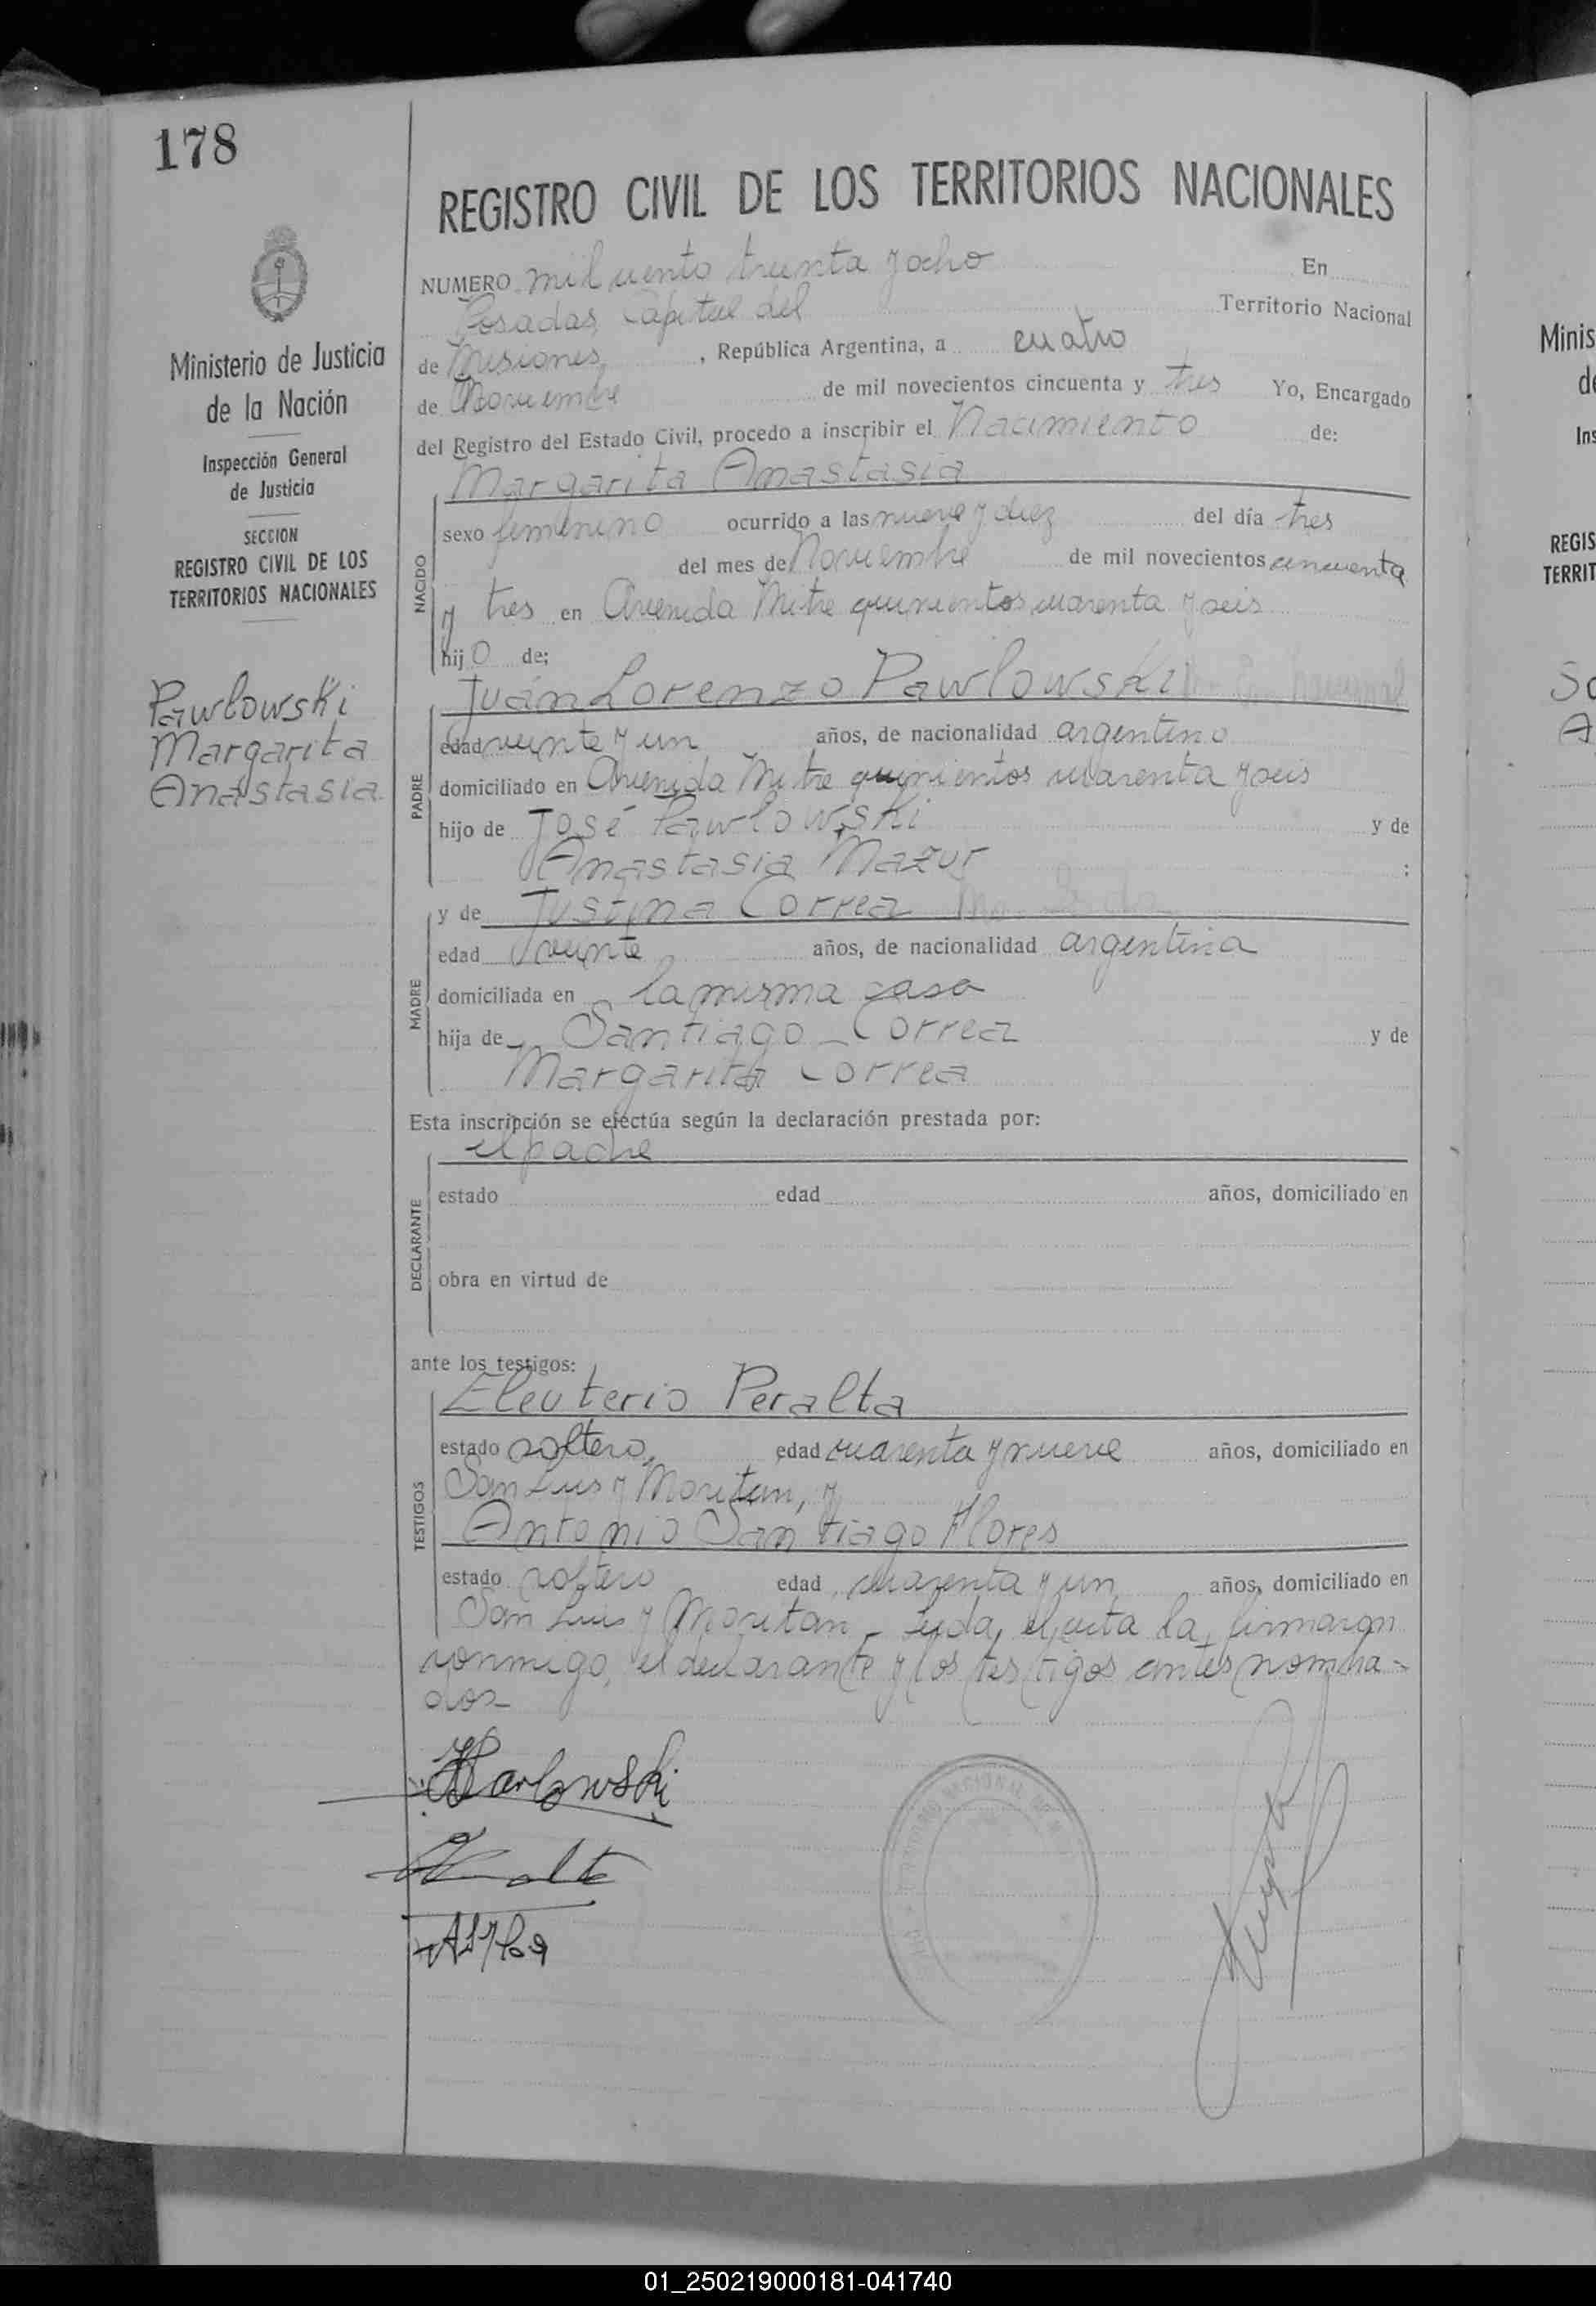 178
REGISTRO CIVIL DE LOS TERRITORIOS NACIONALES
NUMERO mil ciento treinta y ocho En
Posadas, Capital del Territorio Nacional
de Misiones, , República Argentina, a cuatro
de Noviembre de mil novecientos cincuenta y tres Yo, Encargado
del Registro del Estado Civil, procedo a inscribir el Nacimiento de:
Margarita Anastasia
NACIDO
sexo femenino ocurrido a las nueve y diez del día tres
del mes de Noviembre de mil novecientos cincuenta
y tres en Avenida Mitre quinientos cuarenta y seis
hijo de;
Juán Lorenzo Pawlowski
PADRE
edad veinte y un años, de nacionalidad argentino
domiciliado en Avenida Mitre quinientos cuarenta y seis
hijo de José Pawlowski y de
Anastasia Mazur :
y de Justina Correa
MADRE
edad veinte años, de nacionalidad argentina
domiciliada en la misma casa
hija de Santiago Correa y de
Margarita Correa
Esta inscripción se efectúa según la declaración prestada por:
el padre
DECLARANTE
estado edad años, domiciliado en
obra en virtud de
ante los testigos:
Eleuterio Peralta
TESTIGOS
estado soltero, edad cuarenta y nueve años, domiciliado en
San Luis y Moritan, y
Antonio Santiago Flores
estado soltero edad cuarenta y un años, domiciliado en
San Luis y Moritan - Leída el acta la firmaron
conmigo, el declarante y los testigos antes nombra-
dos-
Ministerio de Justicia
de la Nación
Inspección General
de Justicia
SECCION
REGISTRO CIVIL DE LOS
TERRITORIOS NACIONALES
Pawlowski
Margarita
Anastasia
Minis
de
Ins
REGIS
TERRIT
01_250219000181-041740